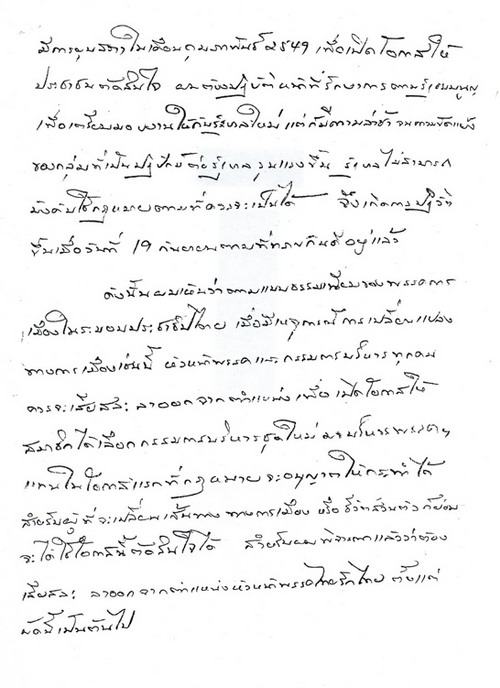 มีการยุบสภาในเดือนกุมภาพันธ์ ๒๕๔๙ เพื่อเปิดโอกาสให้
ประชาชนตัดสินใจ ผมต้องปฏิบัติหน้าที่รักษาการตามรัฐธรรมนูญ
เพื่อเตรียมมอบงานให้กับรัฐบาลใหม่ แต่ก็มีความล่าช้า จนความขัดแย้ง
ของกลุ่มที่เป็นปฏิปักษ์ต่อรัฐบาล รุนแรงขึ้น รัฐบาลไม่สามารถ
บังคับใช้กฎหมายตามที่ควรจะเป็นได้ จึงเกิดการปฏิวัติ
ขึ้นเมื่อวันที่ 19 กันยายนตามที่ทราบกันดีอยู่แล้ว
ดังนั้นผมเห็นว่าตามแบบธรรมเนียมของพรรคการ
เมืองในระบอบประชาธิปไตย เมื่อมีเหตุการณ์การเปลี่ยนแปลง
ทางการเมืองเช่นนี้ หัวหน้าพรรคและกรรมการบริหารทุกคน
ควรจะเสียสละ ลาออกจากตำแหน่ง เพื่อเปิดโอกาสให้
สมาชิกได้เลือกกรรมการบริหารชุดใหม่ มาบริหารพรรค
แทนในโอกาสแรกที่กฎหมายจะอนุญาตให้กระทำได้
สำหรับผู้ที่จะเปลี่ยนเส้นทาง ทางการเมือง หรือชีวิตส่วนตัว ก็ย่อม
จะได้ใช้โอกาสนี้ตัดสินใจได้ สำหรับผมพิจารณาแล้วว่าต้อง
เสียสละ ลาออกจากตำแหน่งหัวหน้าพรรคไทยรักไทย ตั้งแต่
บัดนี้เป็นต้นไป